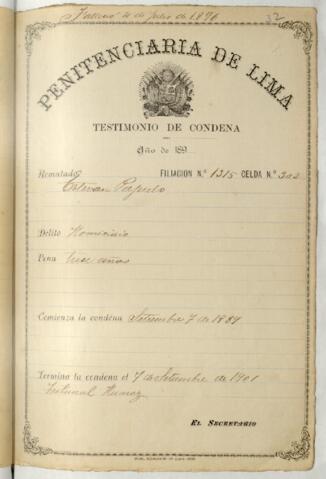 Falleció 4 de Julio de 1896
32
PENITENCIARIA DE LIMA
TESTIMONIO DE CONDENA
Año de 189
Rematado: FILIACION N.º 1315 CELDA N.º 302
Estevan
Delito Homicidio
Pena años
Comienza la condena Setiembre 7 de 1889
Termina la condena el 7 de Setiembre de 1901
Tribunal Huaraz
EL SECRETARIO